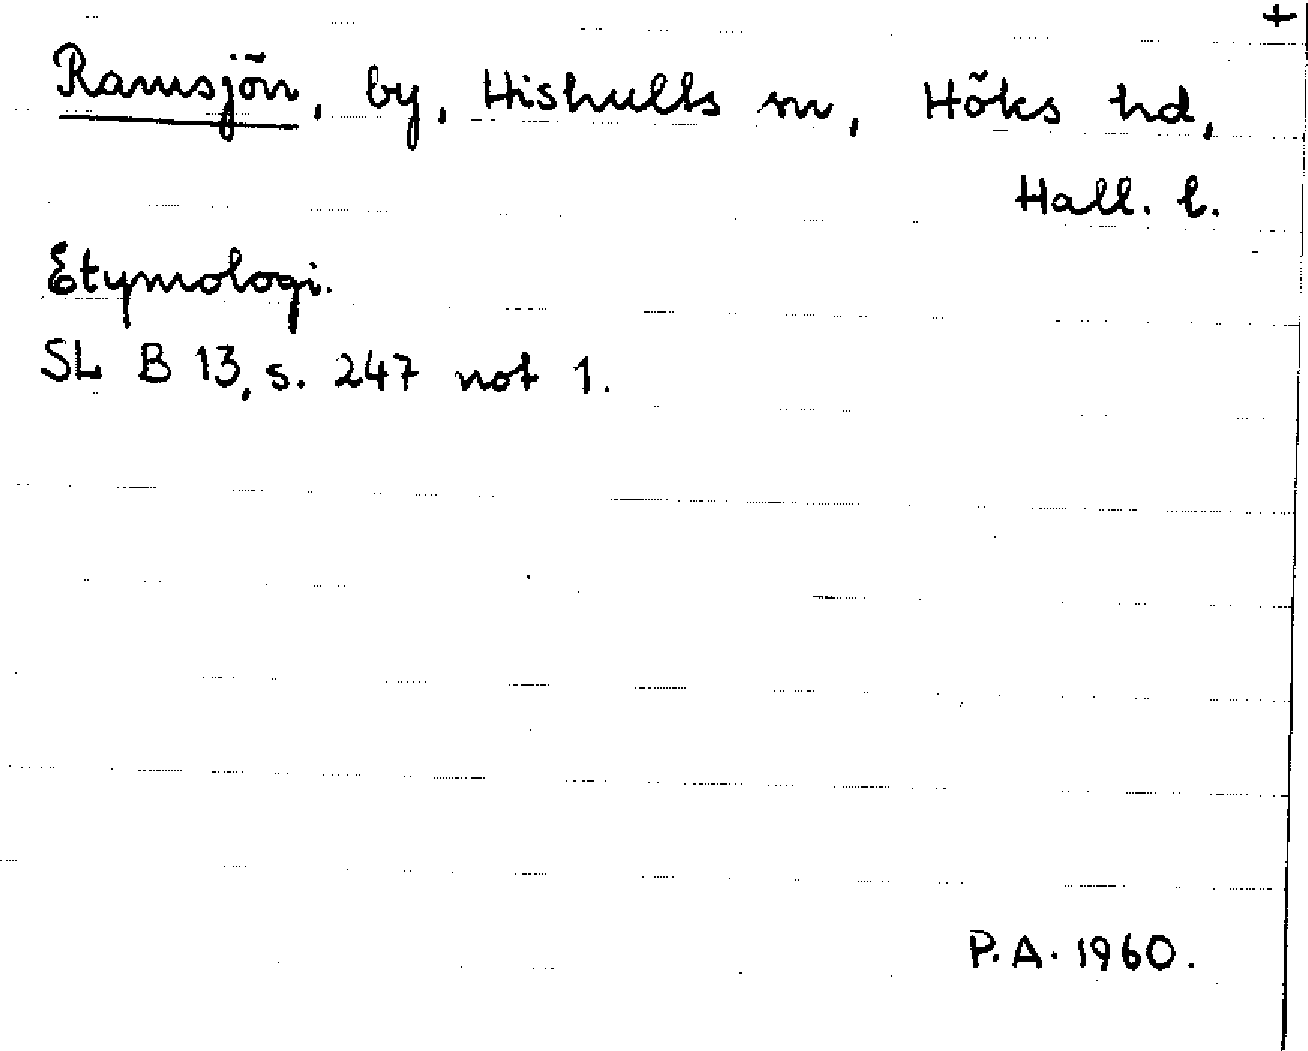 +
Ramsjön, by, Hishults sn, Höks hd,
Hall. l.
Etymologi.
SL B 13, s. 247 not 1.
P.A. 1960.